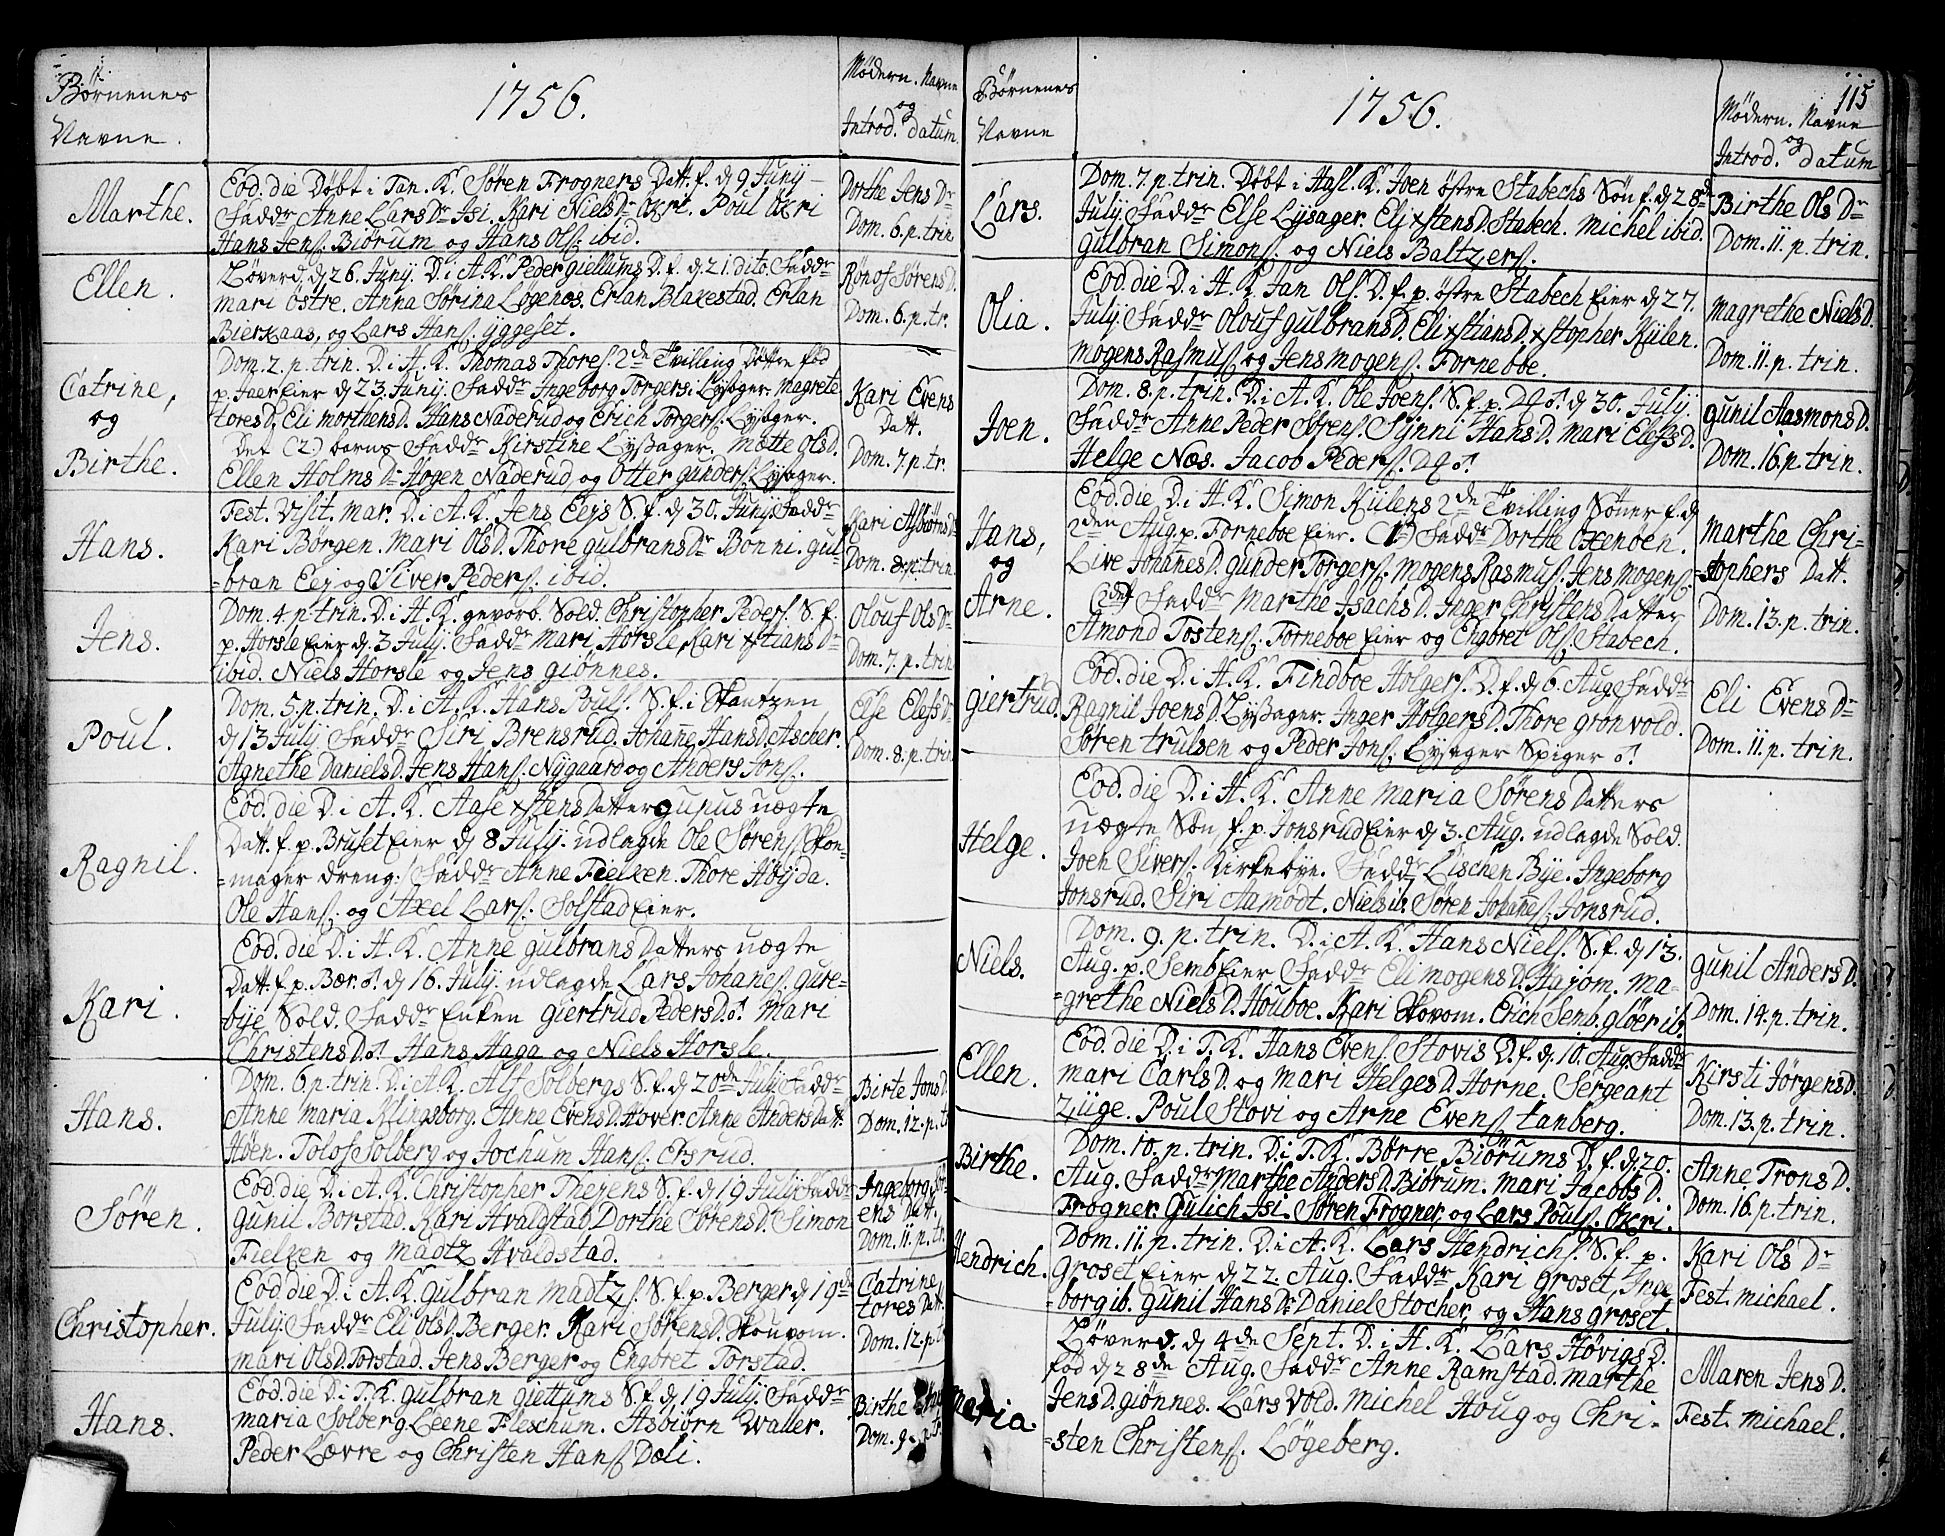 Børnenes
Navne.
1756.
Mødern. Navne
og
Introd. datum.
Marthe.
Eod. die Døbt i Tan. K. Søren Frogners Datt. f. d 9 Junij
Fadd.r Anne Lars D.r Isi. Kari Niels D.r Økri. Poul Økri
Hans Jens. Biørum og Hans Ols. ibid.
Dorthe Jens D.r
Dom. 6. p. trin.
Ellen.
Løverd. d 26. Junij. D. i A. K. Peder giellums D. f. d. 21. dito. Fadd.r
mari østre. Anna Sørina Løgenes. Erlan Blakestad. Erlan
Bierkaas, og Lars Hans. ÿggeset.
Rønof Sørens D.
Dom. 6. p. tr.
Catrine,
og
Birthe.
Dom. 2. p. trin. D. i H. K. Thomas Thores. 2de Tvilling Døttre fød
p. Jaer Eier d 23. Junij. Fadd.r Ingeborg Torgers. Lysager. magrete
tores D. Eli morthens D. Hans Naderud og Erich Torgers. Lysager.
Det (2.) barns Fadd.r Kirstine Lysager. Mette Ols D.
Ellen Holms D.r Hogen Naderud, og Otter gunders. Lysager.
Kari Evens
Datt.
Dom. 7. p. tr.
Hans.
Fest. Visit. mar. D. i A. K. Jens Eejs S. f. d 30. Junij. Fadd.r
Kari Børgen. Mari Ols D. Thore gulbrans D.r Bonni. gul-
=bran Eej og Siver Peders. ibid.
Kari Asbiørns D.r
Dom. 8. p. trin.
Jens.
Dom. 4. p. trin. D. i H. K. gevorb. Sold. Christopher Peders. S. f.
p. Horsle Eier d 3 Julij. Fadd.r mari Horsle, Kari xstians D.r
ibid. Niels Horsle og Jens giønnes.
Olouf Ols D.r
Dom. 7. p. trin.
Poul.
Dom. 5. p. trin. D. i A. K. Hans Pouls. S. f. i Skantzen
d 13 Julij Fadd.r Siri Brensrud. Johañe Hans D. Ascher.
Agnethe Daniels D. Jens Hans. Nÿgaard og Anders Jons.
Else Elefs D.r
Dom. 8. p. trin.
Ragnil.
Eod. die D. i A. K. Aase xstens Datter gupus uægte
Datt. f. p. Bruset Eier d 8 Julij. udlagde Ole Sørens. Skon-
=mager dreng. Fadd.r Anne Fielken. Thore Høÿda.
Ole Hans. og Axel Lars. Solstad Eier.
Kari.
Eod. die D. i H. K. Anne gulbrans Datters uægte
Datt. f. p. Bær. d 16. Julij. udlagde Lars Johanes. gure-
bije Sold. Fadd.r Enken giertrud Peders D. Mari
Christens D. Hans Haga og Niels Horsle.
Hans.
Dom. 6. p. trin. D. i A. K. Alf Solbergs S. f. d 20de Julij Fadd.r
Anne maria Klingsborg. Anne Evens D. Hover. Anne Anders Datt.
Høen. Tolof Solberg og Jochum Hans. Ersrud.
Birte Jons D.
Dom. 12. p. tr.
Søren.
Eod. die D. i A. K. Christopher Thejens S. f. d 19 Julij Fadd.r
gunil Borstad. Kari Hvaldstad. Dorthe Sørens D. Simon
Fielken og Madtz Hvaldstad.
Ingeborg Sør-
ens Datt.
Dom. 11. p. tr.
Christopher.
Eod die D. i A. K. gulbran madtzs. S. f. p. Berger d 19d.
Julij. Fadd.r Eli Ols D. Berger. Kari Sørens D. Skouvom.
mari Ols D. Torstad. Jens Berger og Engbret Torstad.
Catrine
tores Datt.
Dom. 12. p. tr
Hans.
Eod. die D. i T. K. gulbran giettums S. f. d 19 Julij. Fadd.r
maria Solberg. Leene Fleschum. Asbiørn Waller.
Peder Løvre og Christen Hans. Dæli.
Birthe
Dom. 9. p. tr.
115
Børnenes
Navne
1756.
Mødern. Navne
og
Introd. datum
Lars.
Dom. 7. p. trin. Døbt i Hasl. K. Joen østre Stabechs Søn f. d 28de
Julij Fadd.r Else Lÿsager. Eli xstens D. Stabech. Michel ibid.
gulbran Simons. og Niels Baltzers.
Birthe Ols D.r
Dom. 11. p. trin.
Olia.
Eod. die D. i H. K. Jan Ols. D. f. p. østre Stabech Eier d 27.
Julij. Fadd.r Olouf gulbrans D. Eli xstians D. xstopher Külen.
mogens Rasmus. og Jens mogens. Torneboe.
Magrethe Niels D.
Dom. 11. p. trin.
Joen.
Dom. 8. p. trin. D. i A. K. Ole Joens. S. f. p. D d 30. Julij.
Fadd.r Anne Peder Sørens. Sÿnni Hans D. Mari Elefs D.
Helge Næs. Jacob Peders.
gunil Aasmons D.
Dom. 16. p. trin.
Hans,
og
Arne.
Eod. die D. i H. K. Simon Külens 2de Tvilling Sønner f. d
2den Aug. p. Torneboe Eier. (1) Fadd.r Dorthe Oxenøen.
Live Johañes D. gunder Torgers. Mogens Rasmus. Jens mogens.
(2de) Fadd.r Marthe Isachs D. Inger Christens Datter
Amond Tostens. Torneboe Eier og Engbret Ols. Stabech.
Marthe Chri-
=stophers Datt.
Dom. 13. p. trin.
giertrud.
Eod. die D. i H. K. Findboe Holgers. D. f. d 6. Aug. Fadd.r
Ragnil Joens D. Lysager. Inger Holgers D. Thore grønvold.
Søren trulsen og Peder Jons. Lysager Spiger
Eli Evens D.r
Dom. 11. p. trin.
Helge.
Eod. die D. i H. K. Anne Maria Sørens Datters
uægte Søn, f. p. Jonsrud Eier d 3. Aug. udlagde Sold.
Joen Sivers. Kirkebye. Fadd.r Lischen Bye. Ingeborg
Jonsrud. Siri Aamodt. Niels ib. Søren Johañes. Jonsrud.
Niels.
Dom. 9. p. trin. D. i A. K. Hans Niels. S. f. d 13.
Aug. p. Semb Eier Fadd.r Eli mogens D. Hajom. Ma-
=grethe Niels D. Houboe. Kari Skovom. Erich Semb. gløer ib.
gunil Anders D.
Dom. 14. p. trin.
Ellen.
Eod. die D. i T. K. Hans Evens. Stovis D. f. d 10. Aug. Fadd.r
mari Carls D. og mari Helges D. Horne. Sergeant
Züge. Poul Stovi og Arne Evens. tanberg.
Kirsti Jørgens D.
Dom. 13. p. trin.
Birthe.
Dom. 10. p. trin. D. i T. K. Børre Biørums D. f. d 20.
Aug. Fadd.r Marthe Anders D. Biørum. mari Jacobs D.
Frogner. Gulich Isi. Søren Frogner, og Lars Pouls. Økri.
Anne Trons D.
Dom. 16. p. trin.
Hendrich.
Dom. 11. p. trin. D. i A. K. Lars Hendrichs. S. f. p.
Groset Eier d 22. Aug. Fadd.r Kari Groset, Inge
=borg ib. gunil Hans D.r Daniel Stocher, og Hans Groset.
Kari Ols D.r
Fest. michael.
Maria.
Løverd. d 4de Sept. D. i H. K. Lars Høvigs D.
fød d 28de Aug. Fadd.r Anne Ramstad. marthe
Jens D. giønnes. Lars Vold. Michel Houg og Chri-
=sten Christens. Løgeberg.
Maren Jens D.
Fest. michael.